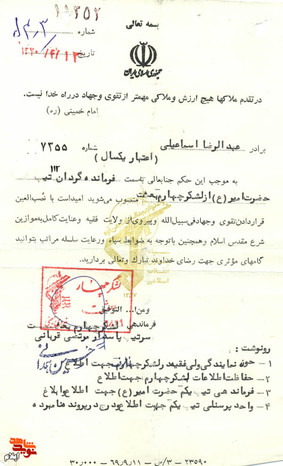 بسمه تعالی
شماره
تاریخ
جمهوری اسلامی ایران
در تقدم ملاکها هیچ ارزش و ملاکی مهمتر از تقوی و جهاد در راه خدا نیست.
امام خمینی (ره)
برادر عبدالرضا اسماعیلی شماره ۷۳۵۵
(اعتبار یکسال)
به موجب این حکم جنابعالی بسمت فرمانده گردان
حضرت امیر (ع) از لشکر چهارم بعثت منصوب می‌شوید امیداست با نصب‌العین
قراردادن تقوی وجهاد فی‌سبیل‌الله و پیروی از ولایت فقیه و عنایت کامل به موازین
شرع مقدس اسلام و همچنین با توجه به ضوابط سپاه و رعایت سلسله مراتب بتوانید
گامهای مؤثری جهت رضای خداوند تبارک وتعالی بردارید.
ومن ا... التوفیق
فرماندهی لشکر چهارم بعثت
سرتیپ پاسدار مرتضی قربانی
رونوشت :
۱ – حوزه نمایندگی ولی فقیه در لشکر چهارم جهت اطلاع
۲ – حفاظت اطلاعات لشکر چهارم جهت اطلاع
۳ – فرماندهی تیپ یکم حضرت امیر (ع) جهت اطلاع و ابلاغ
۴ – واحد پرسنلی تیپ یکم جهت اطلاع و درج در پرونده نامبرده
۲۳۵۹۰ – ۳/س – ۱۱ر۹ر۶۹ – ۳۰٫۰۰۰